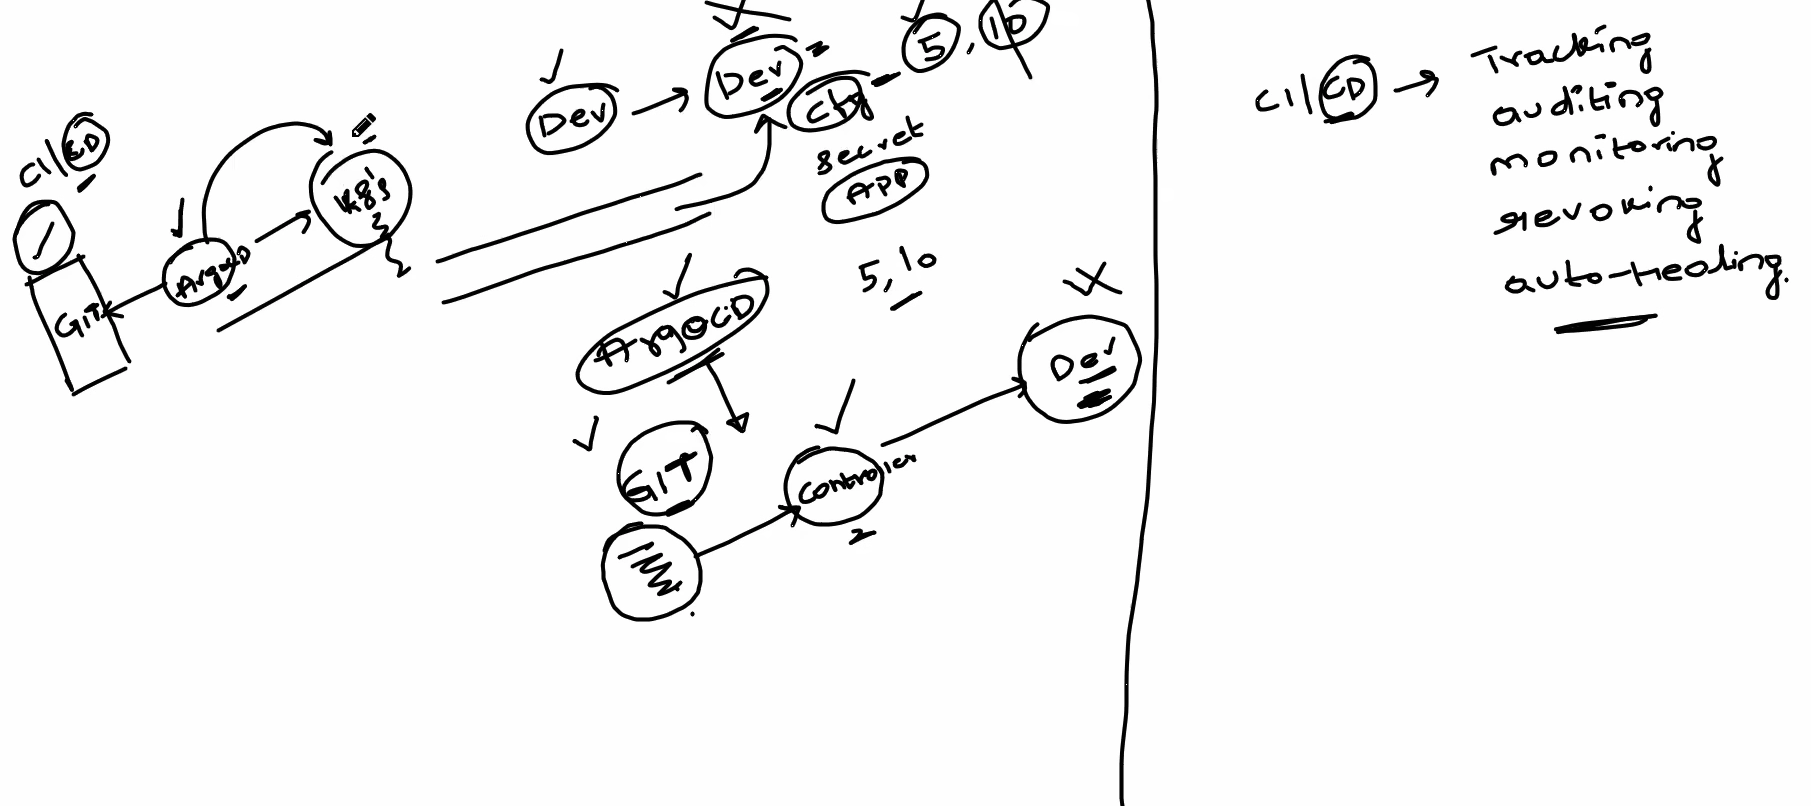 CI/CD
GIT
ArgoCD
K8's
Dev
Dev
cfg
5, 10
secret
APP
5, 10
ArgoCD
GIT
Controller
Dev
CI/CD → Tracking
auditing
monitoring
revoking
auto-Healing.